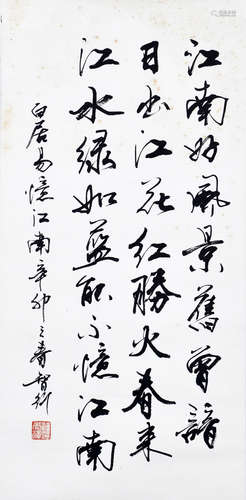 江南好風景舊曾諳
日出江花紅勝火春来
江水綠如藍能不憶江南
白居易憶江南辛卯之